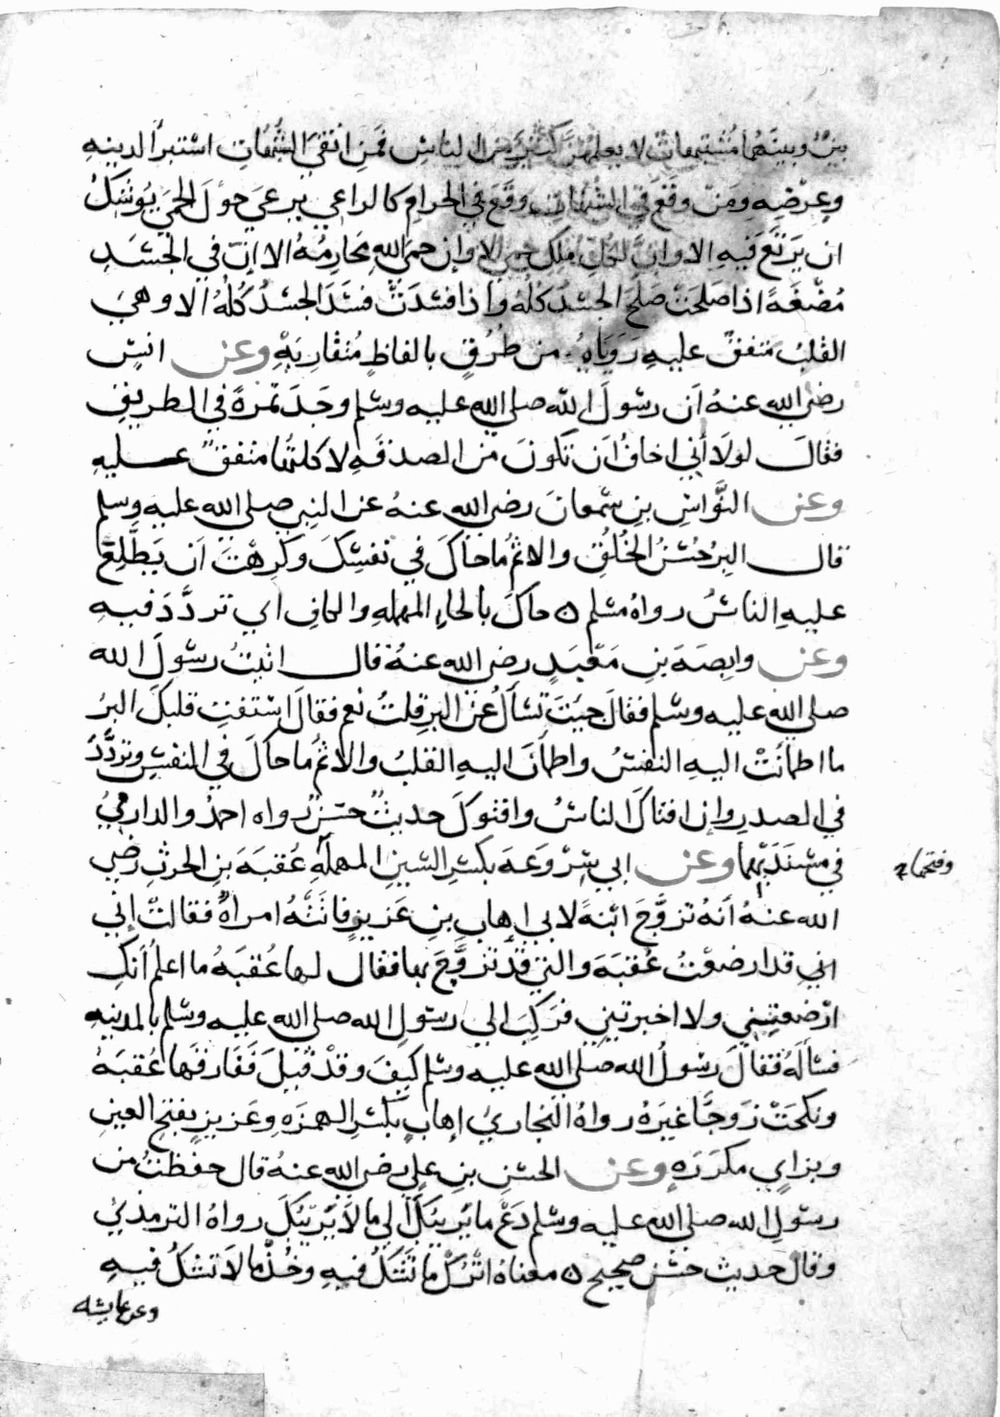 بين وبينهما مشتبهات لا يعلمهن كثير من الناس فمن اتقى الشبهات استبرأ لدينه
وعرضه ومن وقع في الشبهات وقع في الحرام كالراعي يرعى حول الحمى يوشك
ان يرتع فيه الا وان لكل ملك حمى الا وإن حمى الله محارمه الا إن في الجسد
مضغة اذا صلحت صلح الجسد كله وإذا فسدت فسد الجسد كله ألا وهي
القلب متفق عليه روياه من طرق بالفاظ متقاربة وعن انس
رضي الله عنه أن رسول الله صلى الله عليه وسلم وجد تمرة في الطريق
فقال لولا أني اخاف أن تكون من الصدقة لاكلتها متفق عليه
وعن النواس بن سمعان رضي الله عنه عن النبي صلى الله عليه وسلم
قال البر حسن الخلق والاثم ما حاك في نفسك وكرهت أن يطلع
عليه الناس رواه مسلم ه حاك بالحاء المهملة والكاف اي تردد فيه
وعن وابصة بن معبد رضي الله عنه قال اتيت رسول الله
صلى الله عليه وسلم فقال جيت تسأل عن البر قلت نعم فقال استفت قلبك البر
ما اطمأنت اليه النفس واطمأن اليه القلب والاثم ما حاك في النفس وتردد
في الصدر وإن افتاك الناس وافتوك حديث حسن رواه احمد والدارمي
في مسنديهما وعن ابي سروعة بكسر السين المهملة عقبة بن الحرث رضي
وفتحها
الله عنه أنه تزوج ابنة لابي إهاب بن عزيز فاتته امرأة فقالت إني
اني قد ارضعت عقبة والتي قد تزوج بها فقال لها عقبة ما اعلم أنك
ارضعتيني ولا اخبرتيني فركب الى رسول الله صلى الله عليه وسلم بالمدينه
فسأله فقال رسول الله صلى الله عليه وسلم كيف وقد قيل ففارقها عقبة
ونكحت زوجًا غيره رواه البخاري إهاب بكسر الهمزه وعزيز بفتح العين
وبزاي مكررة وعن الحسن بن علي رضي الله عنه قال حفظت من
رسول الله صلى الله عليه وسلم دع ما يريبك الى ما لا يريبك رواه الترمذي
وقال حديث حسن صحيح ه معناه اترك ما تشك فيه وخذ ما لا تشك فيه
وعن عايشه